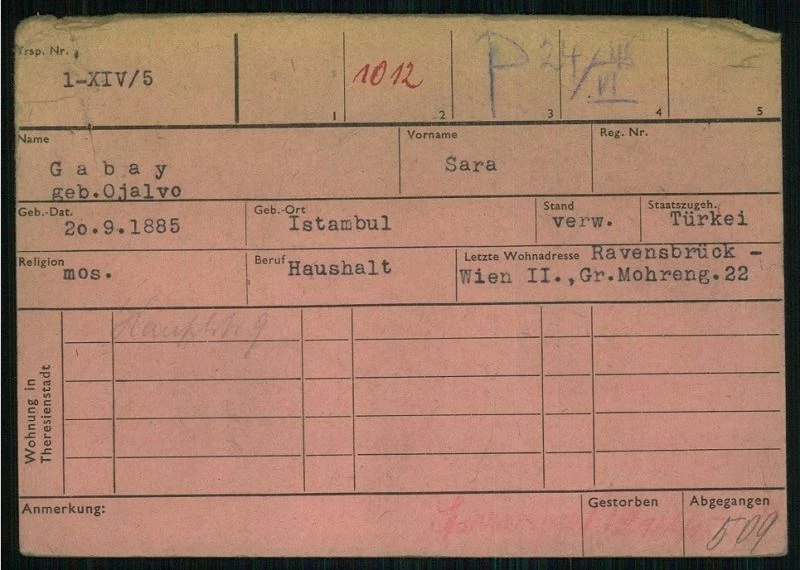 Trsp. Nr.
1-XIV/5
1
1012
2
P 24/
3
VI
4
5
Name
Gabay
geb.Ojalvo
Vorname
Sara
Reg. Nr.
Geb.-Dat.
2o.9.1885
Geb.-Ort
Istambul
Stand
verw.
Staatszugeh.
Türkei
Religion
mos.
Beruf
Haushalt
Letzte Wohnadresse Ravensbrück -
Wien II.,Gr.Mohreng.22
Wohnung in
Theresienstadt
Anmerkung:
Gestorben
Abgegangen
509